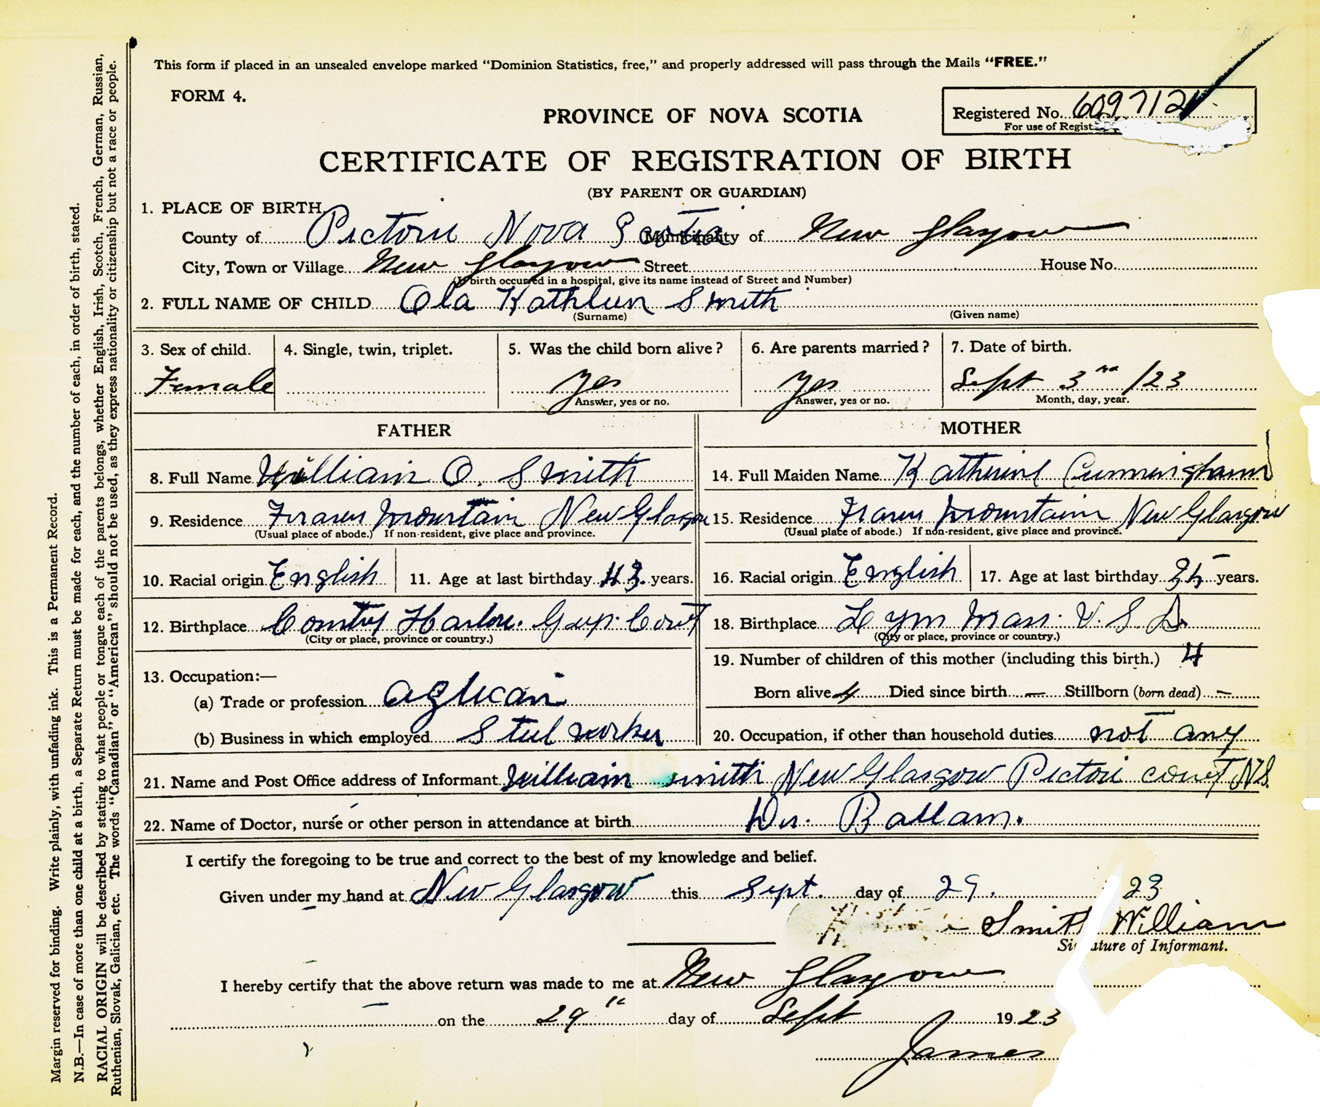 This form if placed in an unsealed envelope marked "Dominion Statistics, free," and properly addressed will pass through the Mails "FREE."
FORM 4.
Registered No. 609712
For use of Regist
PROVINCE OF NOVA SCOTIA
CERTIFICATE OF REGISTRATION OF BIRTH
(BY PARENT OR GUARDIAN)
1. PLACE OF BIRTH
County of Pictou Nova Scotia Municipality of New Glasgow
City, Town or Village New Glasgow Street House No.
(If birth occurred in a hospital, give its name instead of Street and Number)
2. FULL NAME OF CHILD Ola Kathleen Smith
(Surname) (Given name)
3. Sex of child. 4. Single, twin, triplet. 5. Was the child born alive? 6. Are parents married? 7. Date of birth.
Female Yes Yes Sept 3rd /23
Answer, yes or no. Answer, yes or no. Month, day, year.
FATHER MOTHER
8. Full Name William O. Smith 14. Full Maiden Name Katherine Cunningham
9. Residence Mountain New Glasgow 15. Residence Mountain New Glasgow
(Usual place of abode.) If non-resident, give place and province. (Usual place of abode.) If non-resident, give place and province.
10. Racial origin English 11. Age at last birthday 43 years. 16. Racial origin English 17. Age at last birthday 35 years.
12. Birthplace Country Harbor 18. Birthplace Lynn Mass. U. S. A.
(City or place, province or country.) (City or place, province or country.)
13. Occupation:— 19. Number of children of this mother (including this birth.) 4
(a) Trade or profession Born alive 4 Died since birth — Stillborn (born dead) –
(b) Business in which employed Steel worker 20. Occupation, if other than household duties not any
21. Name and Post Office address of Informant William Smith New Glasgow Pictou N.S.
22. Name of Doctor, nurse or other person in attendance at birth Dr. Ballam.
I certify the foregoing to be true and correct to the best of my knowledge and belief.
Given under my hand at New Glasgow this Sept. day of 29. 23
Smith William
Signature of Informant.
I hereby certify that the above return was made to me at New Glasgow
on the 29" day of Sept 1923
James
Margin reserved for binding. Write plainly, with unfading ink. This is a Permanent Record.
N.B.—In case of more than one child at a birth, a Separate Return must be made for each, and the number of each, in order of birth, stated.
RACIAL ORIGIN will be described by stating to what people or tongue each of the parents belongs, whether English, Irish, Scotch, French, German, Russian,
Ruthenian, Slovak, Galician, etc. The words "Canadian" or "American" should not be used, as they express nationality or citizenship but not a race or people.